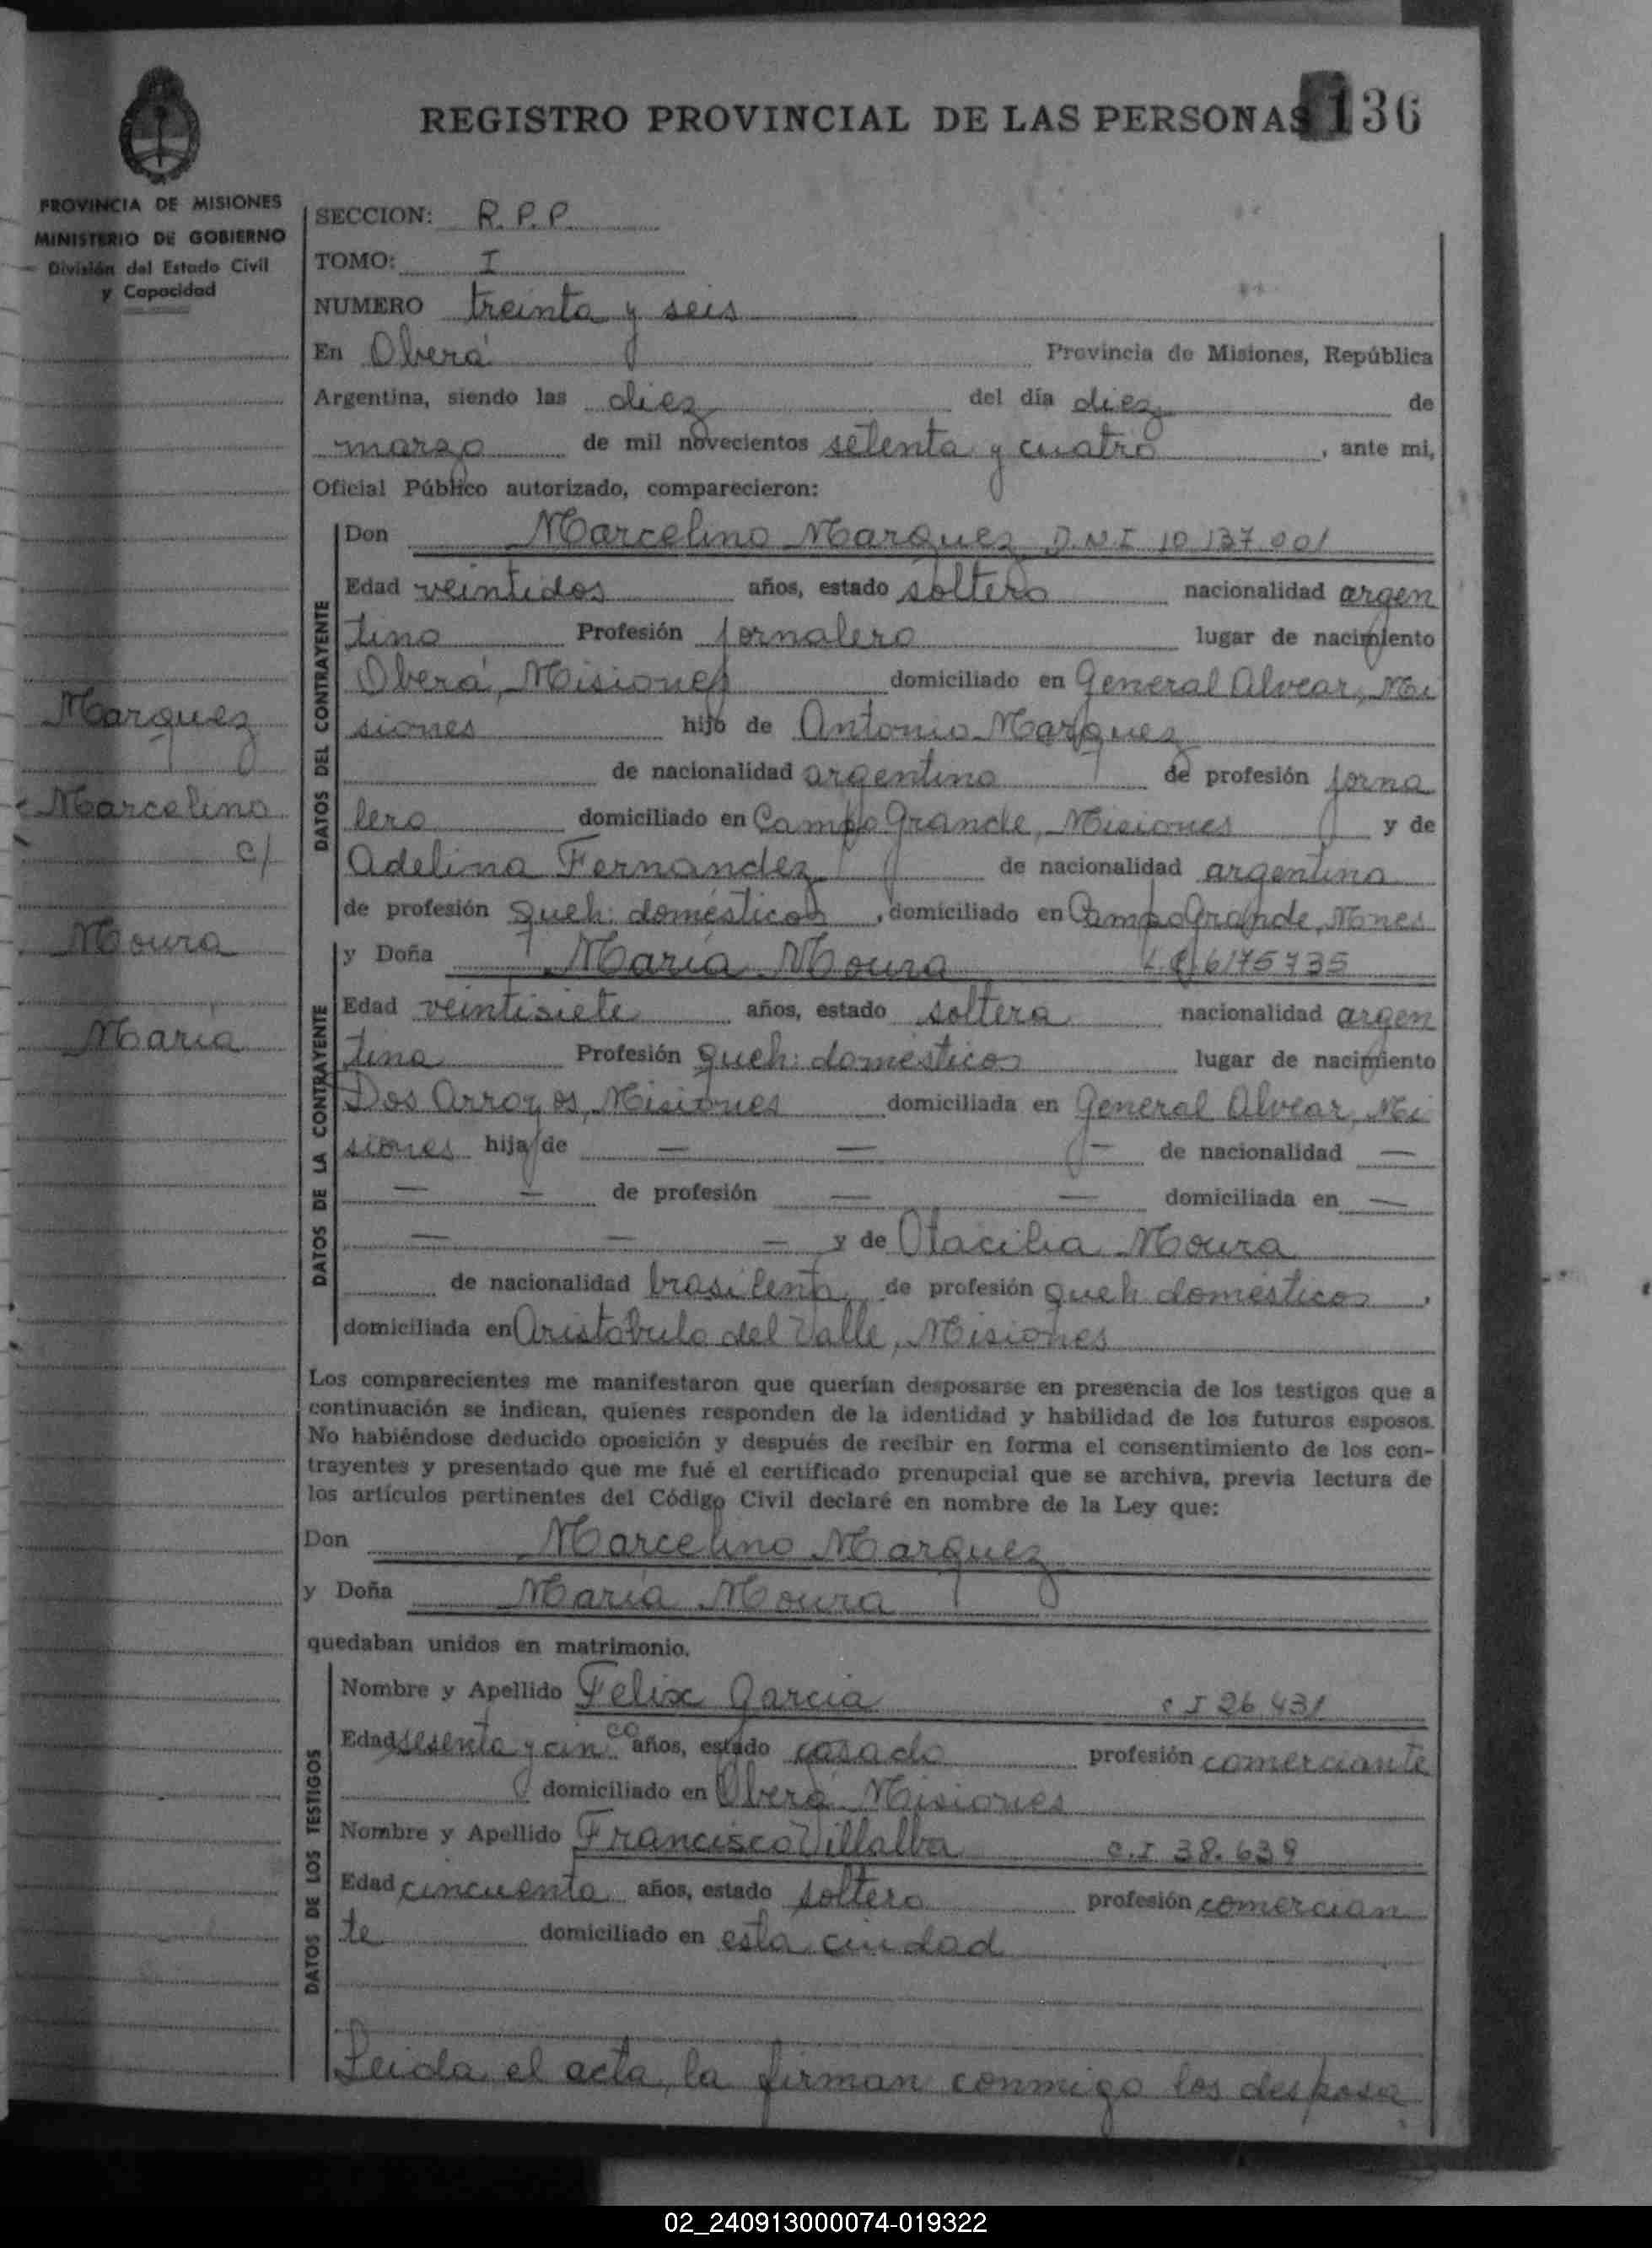 REGISTRO PROVINCIAL DE LAS PERSONAS 136
PROVINCIA DE MISIONES
MINISTERIO DE GOBIERNO
División del Estado Civil
y Capacidad
SECCION: R. P. P.
TOMO: I
NUMERO treinta y seis
En Oberá Provincia de Misiones, República
Argentina, siendo las diez del día diez de
marzo de mil novecientos setenta y cuatro, ante mi,
Oficial Público autorizado, comparecieron:
Marquez
Marcelino
c/
Moura
Maria
DATOS DEL CONTRAYENTE
Don Marcelino Marquez D.N.I 10 137.001
Edad veintidos años, estado soltero nacionalidad argen
tino Profesión jornalero lugar de nacimiento
Oberá, Misiones domiciliado en General Alvear, Mi
siones hijo de Antonio Marquez
de nacionalidad argentino de profesión jorna
lero domiciliado en Campo Grande, Misiones y de
Adelina Fernandez de nacionalidad argentina
de profesión queh: domésticos, domiciliado en Campo Grande, Mnes
DATOS DE LA CONTRAYENTE
y Doña Maria Moura L.C. 6175735
Edad veintisiete años, estado soltera nacionalidad argen
tina Profesión queh: domésticos lugar de nacimiento
Dos Arroyos, Misiones domiciliada en General Alvear, Mi
siones hija de — — — de nacionalidad —
— — de profesión — — domiciliada en —
— — — y de Otacilia Moura
de nacionalidad brasileña, de profesión queh domésticos,
domiciliada en Aristobulo del Valle, Misiones
Los comparecientes me manifestaron que querían desposarse en presencia de los testigos que a
continuación se indican, quienes responden de la identidad y habilidad de los futuros esposos.
No habiéndose deducido oposición y después de recibir en forma el consentimiento de los con-
trayentes y presentado que me fué el certificado prenupcial que se archiva, previa lectura de
los artículos pertinentes del Código Civil declaré en nombre de la Ley que:
Don Marcelino Marquez
y Doña Maria Moura
quedaban unidos en matrimonio.
DATOS DE LOS TESTIGOS
Nombre y Apellido Felix Garcia C I 26 431
Edad sesenta y cinco años, estado casado profesión comerciante
domiciliado en Oberá Misiones
Nombre y Apellido Francisco Villalba C.I 38.639
Edad cincuenta años, estado soltero profesión comercian
te domiciliado en esta ciudad
Leida el acta, la firman conmigo los desposa
02_240913000074-019322